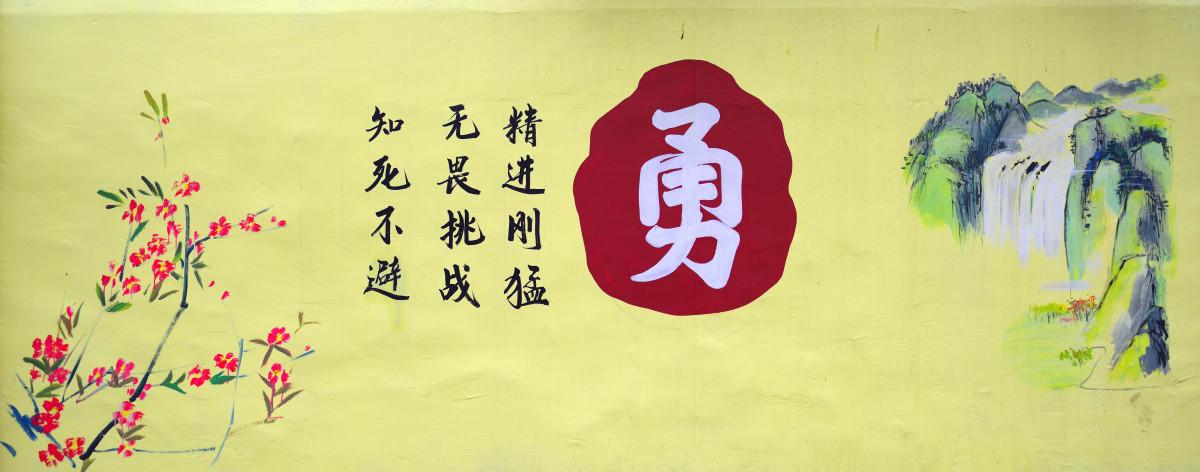 勇
精进刚猛
无畏挑战
知死不避